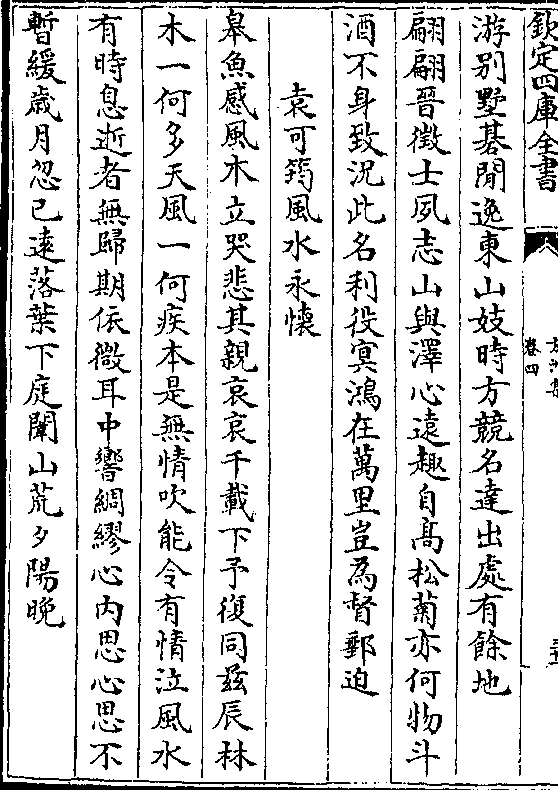 欽定四庫全書
卷四
游别墅碁閒逸東山妓時方競名達出處有餘地
翩翩晉徵士夙志山與澤心遠趣自高松菊亦何物斗
酒不身致況此名利役㝠鴻在萬里豈為督郵迫
袁可筠風水永懐
皋魚感風木立哭悲其親哀哀千載下予復同兹辰林
木一何多天風一何疾本是無情吹能令有情泣風水
有時息逝者無歸期依微耳中響綢繆心内思心思不
暫緩歳月忽已逺落葉下庭闈山荒夕陽晚